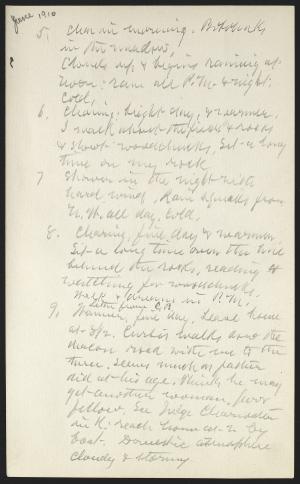 June 1910
5. Clear in morning. Bobolinks
in the meadow,
Clouds up, & begins raining at
noon: rain all P.M. & night;
Cold,
6. Clearing; bright day, & warmer.
I walk about the fields & roads
& shoot woodchucks, Sit a long
time on my rock.
7 Shower in the night with
hard wind, Rain squalls from
N.W. all day, Cold.
8. Clearing, fine day & warmer.
Sit a long time over the hill
behind the rocks, reading &
watching for woodchucks.
Walk & in P.M.
Letter from C.B.
9, Warmer, fine day, Leave home
at 8½. Curtis walks down the
deacon road with me to the
tree. Seems much as father
did at his age. Thinks he may
get another woman, poor
fellow. See Judge Clearwater
in K: reach home at 2 by
boat. Domestic atmosphere
cloudy & stormy.